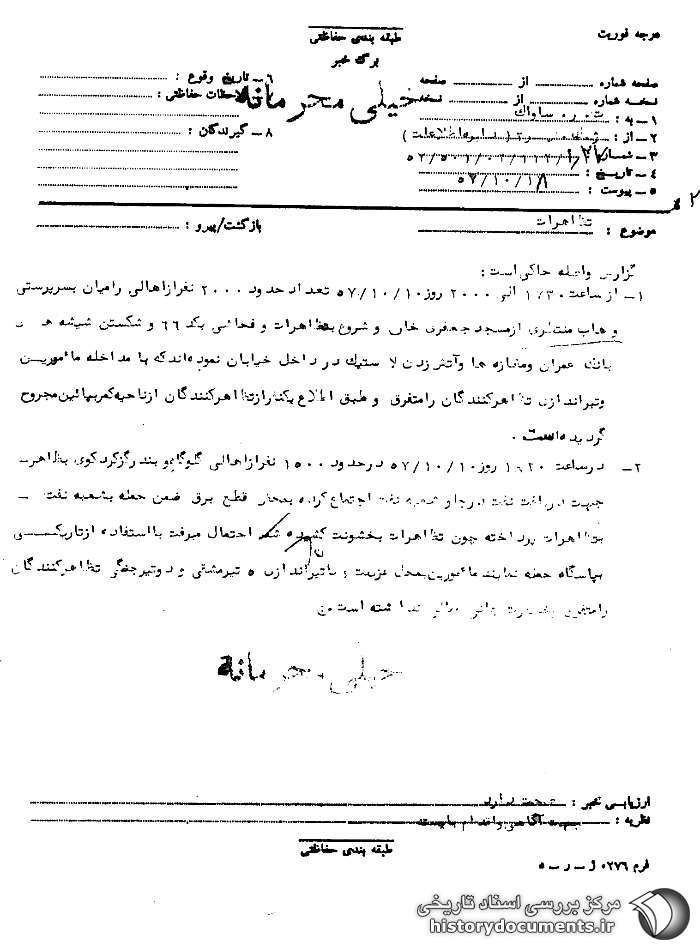 درجه فوریت
طبقه بندی حفاظتی
برگ خبر
صفحه شماره از صفحه
نسخه شماره از نسخه
۱ – به : ساواک
۲ – از :
۳ – شماره
۴ – تاریخ : ۵۷/۱۰/۱۸
۵ – پیوست :
۶ – تاریخ وقوع :
ملاحظات حفاظتی :
۸ – گیرندگان :
خیلی محرمانه
موضوع : تظاهرات
بازگشت/پیرو :
گزارش واصله حاکی است :
۱ – از ساعت ۱۷۳۰ الی ۲۰۰۰ روز ۵۷/۱۰/۱۰ تعداد حدود ۲۰۰۰ نفر از اهالی رامیان بسرپرستی
وهاب منتظری از مسجد جعفری خان و شروع بتظاهرات و فحاشی یکد ۶۶ و شکستن شیشه های
بانک عمران ومغازه ها وآتش زدن لاستیک در داخل خیابان نموده اند که با مداخله مامورین
وتیراندازی تظاهرکنندگان رامتفرق و طبق اطلاع یکنفر از تظاهرکنندگان ازناحیه کمر بپائین مجروح
گردیده است .
۲ – در ساعت ۱۸۲۰ روز ۵۷/۱۰/۱۰ در حدود ۱۵۰۰ نفر از اهالی گلوگاه و بندرگز کردکوی بظاهر
جهت دریافت نفت درجلو شعبه نفت اجتماع کرده بمحض قطع برق ضمن حمله بشعبه نفت
بتظاهرات پرداخته چون تظاهرات بخشونت کشیده شد احتمال میرفت با استفاده ازتاریکی
بپاسگاه حمله نمایند مامورین بمحل عزیمت و باتیراندازی ۵ تیر مشقی و دوتیر جنگی تظاهرکنندگان
رامتفرق جانی نداشته است .
خیلی محرمانه
ارزیابی خبر : صحت دارد
نظریه : جهت آگاهی واقدام بایسته
طبقه بندی حفاظتی
فرم ۰۲۷۶ ل – ر – ۵
مرکز بررسی اسناد تاریخی
historydocuments.ir